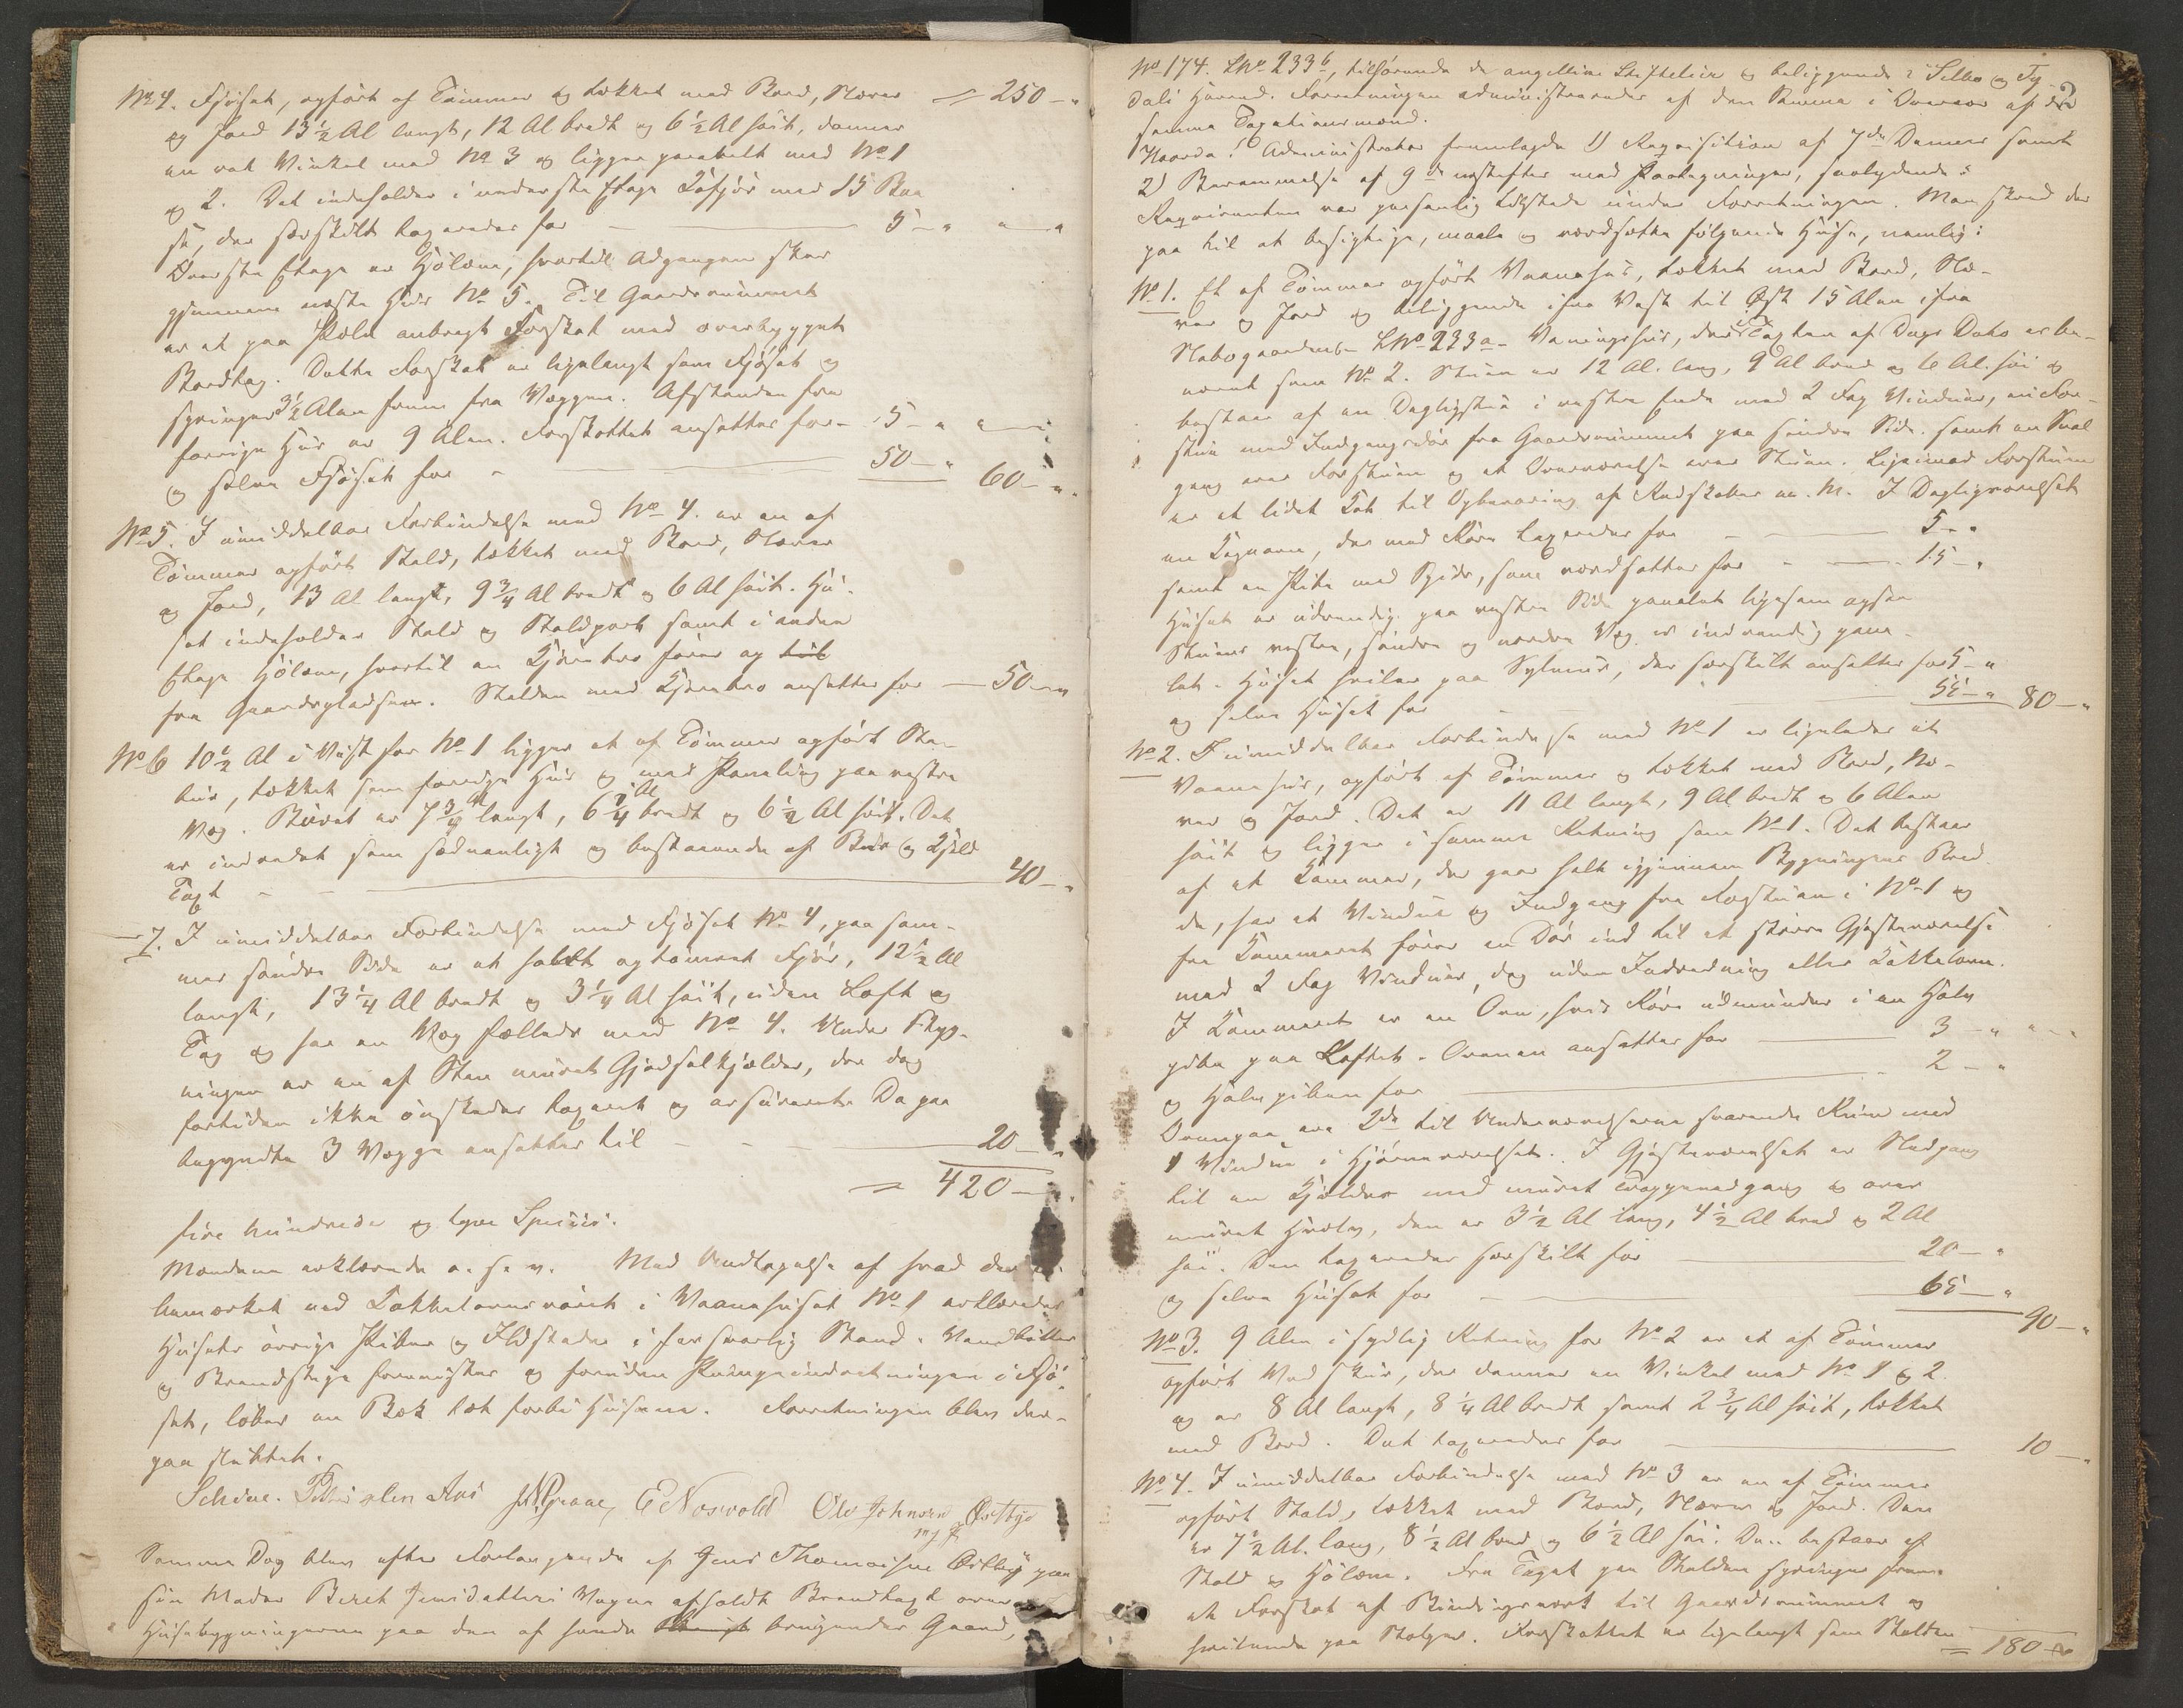 No 4. Fjöset, opfört af Tømmer og tækket med Bord, Næver = 250 - "
og Jord 13 1/2 Al langt, 12 Al bredt og 6 1/2 Al höit, danner
en ret Vinkel med No 3 og ligger parallelt med No 1
og 2. Det indeholder i underste Etage Kofjös med 15 Baa
se, der særskilt taxeredes for 5 - "
Øverste Etage er Höløe, hvortil Adgangen sker
gjennem næste Hus No 5. Til Gaardsrummet
er et paa Pæle anbragt Forskot med overbygget
Bordtag. Dette Forskot er ligelangt som Fjöset og
springer 3 1/2 Alen frem fra Væggen. Afstanden fra
forrige Hus er 9 Alen. Forskottet ansattes for - 5 - "
og selve Fjöset for - 50 - " 60 - "
No 5. I umiddelbar Forbindelse med No 4. er en af
Tømmer opfört Stald, tækket med Bord, Næver
og Jord, 13 Al langt, 9 3/4 Al bredt og 6 Al höit. Hu-
set indeholder Stald og Staldport samt i anden
Etage Höløe, hvortil en Kjörebro förer op til
fra Gaardspladsen. Stalden med Kjörebro ansattes for - 50 - "
No 6 10 1/2 Al i Vest for No 1 ligger et af Tømmer opfört Sta-
bur, tækket som forrige Hus og med Paneling paa vestre
Væg. Buret er 7 3/4 Al langt, 6 1/4 Al bredt og 6 1/2 Al höit. Det
er indredet som sædvanligt og bestaaende af Bur og Kjeld
Taxt - 40 - "
- 7. I umiddelbar Forbindelse med Fjöset No 4, paa sam-
mes söndre Side er et halvt optömret Fjös, 12 1/2 Al
langt, 13 1/4 Al bredt og 3 1/4 Al höit, uden Loft og
Tag og har en Væg fælleds med No 4. Under Byg-
ningen er en af Sten muret Gjødselkjælder, der dog
fortiden ikke önskedes taxeret og assureret. De paa
begyndte 3 Vægge ansattes til - 20 - "
= 420 - "
fire hundrede og tyve Speciés.
Mændene erklærede o. s. v. Med Undtagelse af hvad der er
bemærket ved Kakkelovnsröret i Vaanehuset No 1 erklæredes
Husets övrige Piber og Ildsteder i forsvarlig Stand. Vandbötter
og Brandstige forevistes og foruden Pumpeindretningen i Fjö-
set, löber en Bæk tæt forbi Husene. Forretningen blev der-
paa sluttet.
E Norvold Ole Johnsen Østbye
m f P
Samme Dag blev efter Forlangende af Jens Thomassen Østbye paa
sin Moder Beret Jensdatters Vegne afholdt Brandtaxt over
Husebygningerne paa den af hende brugendes Gaard,
No 174. LNo 233b, tilhörende de Angellske Stiftelser og beliggende i Selbo og Ty-
dals Herred. Forretningen administreredes af den samme i Overvær af de 2
samme Taxationsmænd.
Administrator fremlagde 1) Reqvisition af 7de Dennes samt
2) Berammelse af 9de næstefter med Paategninger, saalydende:
Reqvirenten var personlig tilstede under Forretningen. Man skred der
paa til at besigtige, maale og værdsætte fölgende Huse, nemlig:
No 1. Et af Tømmer opfört Vaanehus, tækket med Bord, Næ-
ver og Jord og beliggende ifra Vest til Øst 15 Alen ifra
Nabogaardens LNo 233a Vaningshus, der i Taxten af Dags Dato er be-
nævnt som No 2. Stuen er 12 Al. lang, 9 Al bred og 6 Al. höi og
bestaar af en Dagligstue i vestre Ende med 2 Fag Vinduer, en For-
stue med Indgangsdör fra Gaardsrummet paa söndre Side samt en Sval
gang over Forstuen og et Overværelse over Stuen. Ligeimod Forstuen
er et lidet Kot til Opbevaring af Redskaber m. M. I Dagligværelset
en Kogeovn, der med Rör taxeredes for - 5 - "
samt en Pibe med Spids, som værdsattes for - 15 - "
Huset er udvendig paa vestre Side panelet ligesom ogsaa
Stuens vestre, söndre og nordre Væg er indvendig pane-
let. Huset hviler paa Sylmur, der særskilt ansattes for 5 - "
og selve Huset for 55 - " 80 - "
No 2. I umiddelbar Forbindelse med No 1 er ligeledes et
Vaanehus, opfört af Tømmer og tækket med Bord, Næ-
ver og Jord. Det er 11 Al langt, 9 Al bredt og 6 Alen
höit og ligger i samme Retning som No 1. Det bestaar
af et Kammer, der gaar helt igjennem Bygningens Bred-
de, har et Vindue og Indgang fra Forstuen i No 1 og
fra Kammeret förer en Dör ind til et större Gjæsteværelse
med 2 Fag Vinduer, dog uden Indredning eller Kakkelovn.
I Kammeret er en Ovn, hvis Rör udmunder i en Halv
pibe paa Loftet. Ovnen ansattes for 3 - "
og Halvpiben for 2 - "
Ovenpaa ere 2de til Underværelserne svarende Rum med
1 Vindue i Hjörneværelset. I Gjæsteværelset er Nedgang
til en Kjælder med muret Trappenedgang og over
muret Hvælv, den er 3 1/2 Al lang, 4 1/2 Al bred og 2 Al
höi. Den taxeredes særskilt for 20 - "
og selve Huset for 65 - "
90 - "
No 3. 9 Alen i sydlig Retning for No 2 er et af Tømmer
opfört Vedskur, der danner en Vinkel med No 1 og 2
og er 8 Al langt, 8 1/4 Al bredt samt 2 3/4 Al höit, tækket
med Bord. Det taxeredes for 10 - "
No 4. I umiddelbar Forbindelse med No 3 er en af Tømmer
opfört Stald, tækket med Bord, Næver og Jord. Den
er 7 1/2 Al. lang, 8 1/2 Al bred og 6 1/2 Al höi. Den bestaar af
Stald og Höløe. Fra Taget paa Stalden springer frem
et Forskot af Bindingsværk til Gaardsrummet og
hvilende paa Stolper. Forskottet er ligelangt som Stalden
= 180 - "